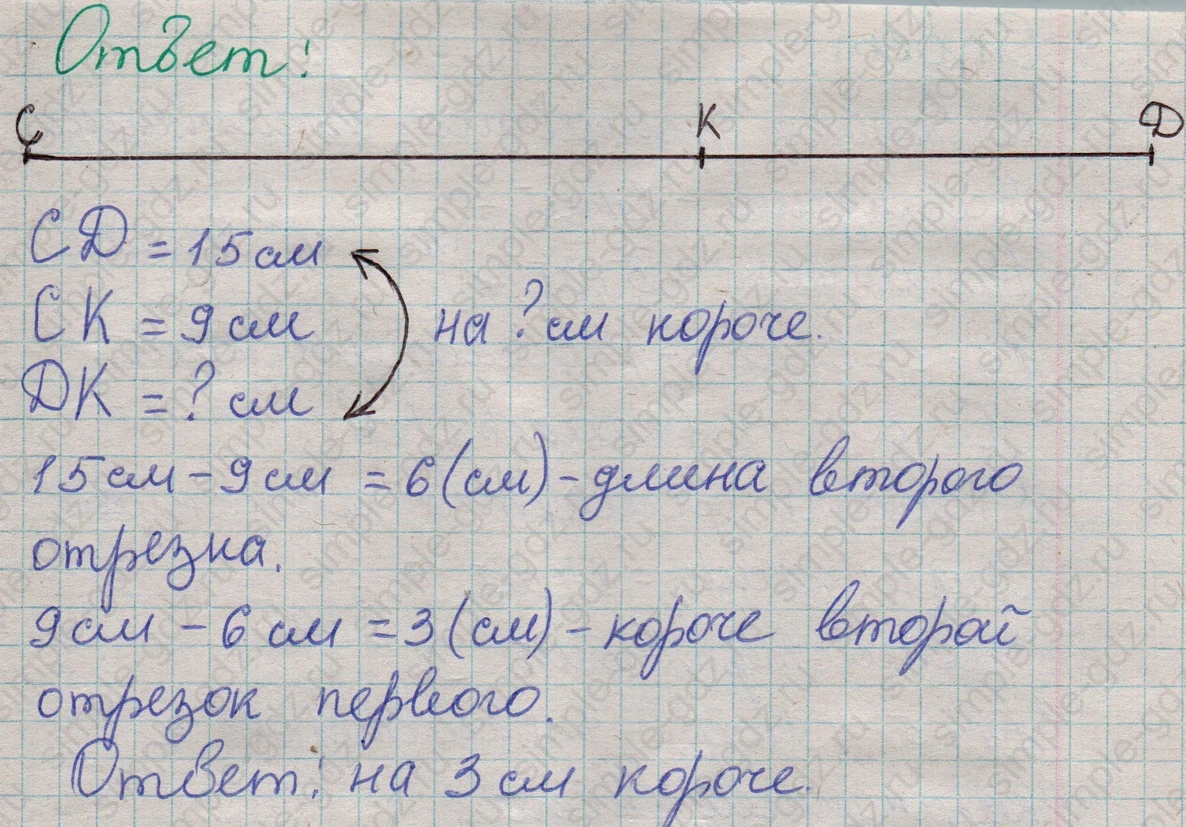 Ответ:
С К D
СD = 15 см
СК = 9 см на ? см короче.
DК = ? см
15 см - 9 см = 6 (см) - длина второго
отрезка.
9 см - 6 см = 3 (см) - короче второй
отрезок первого.
Ответ: на 3 см короче.
simple-gdz.ru